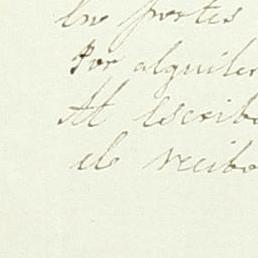 En portes
Por alquiler
Al escriba
de recibo